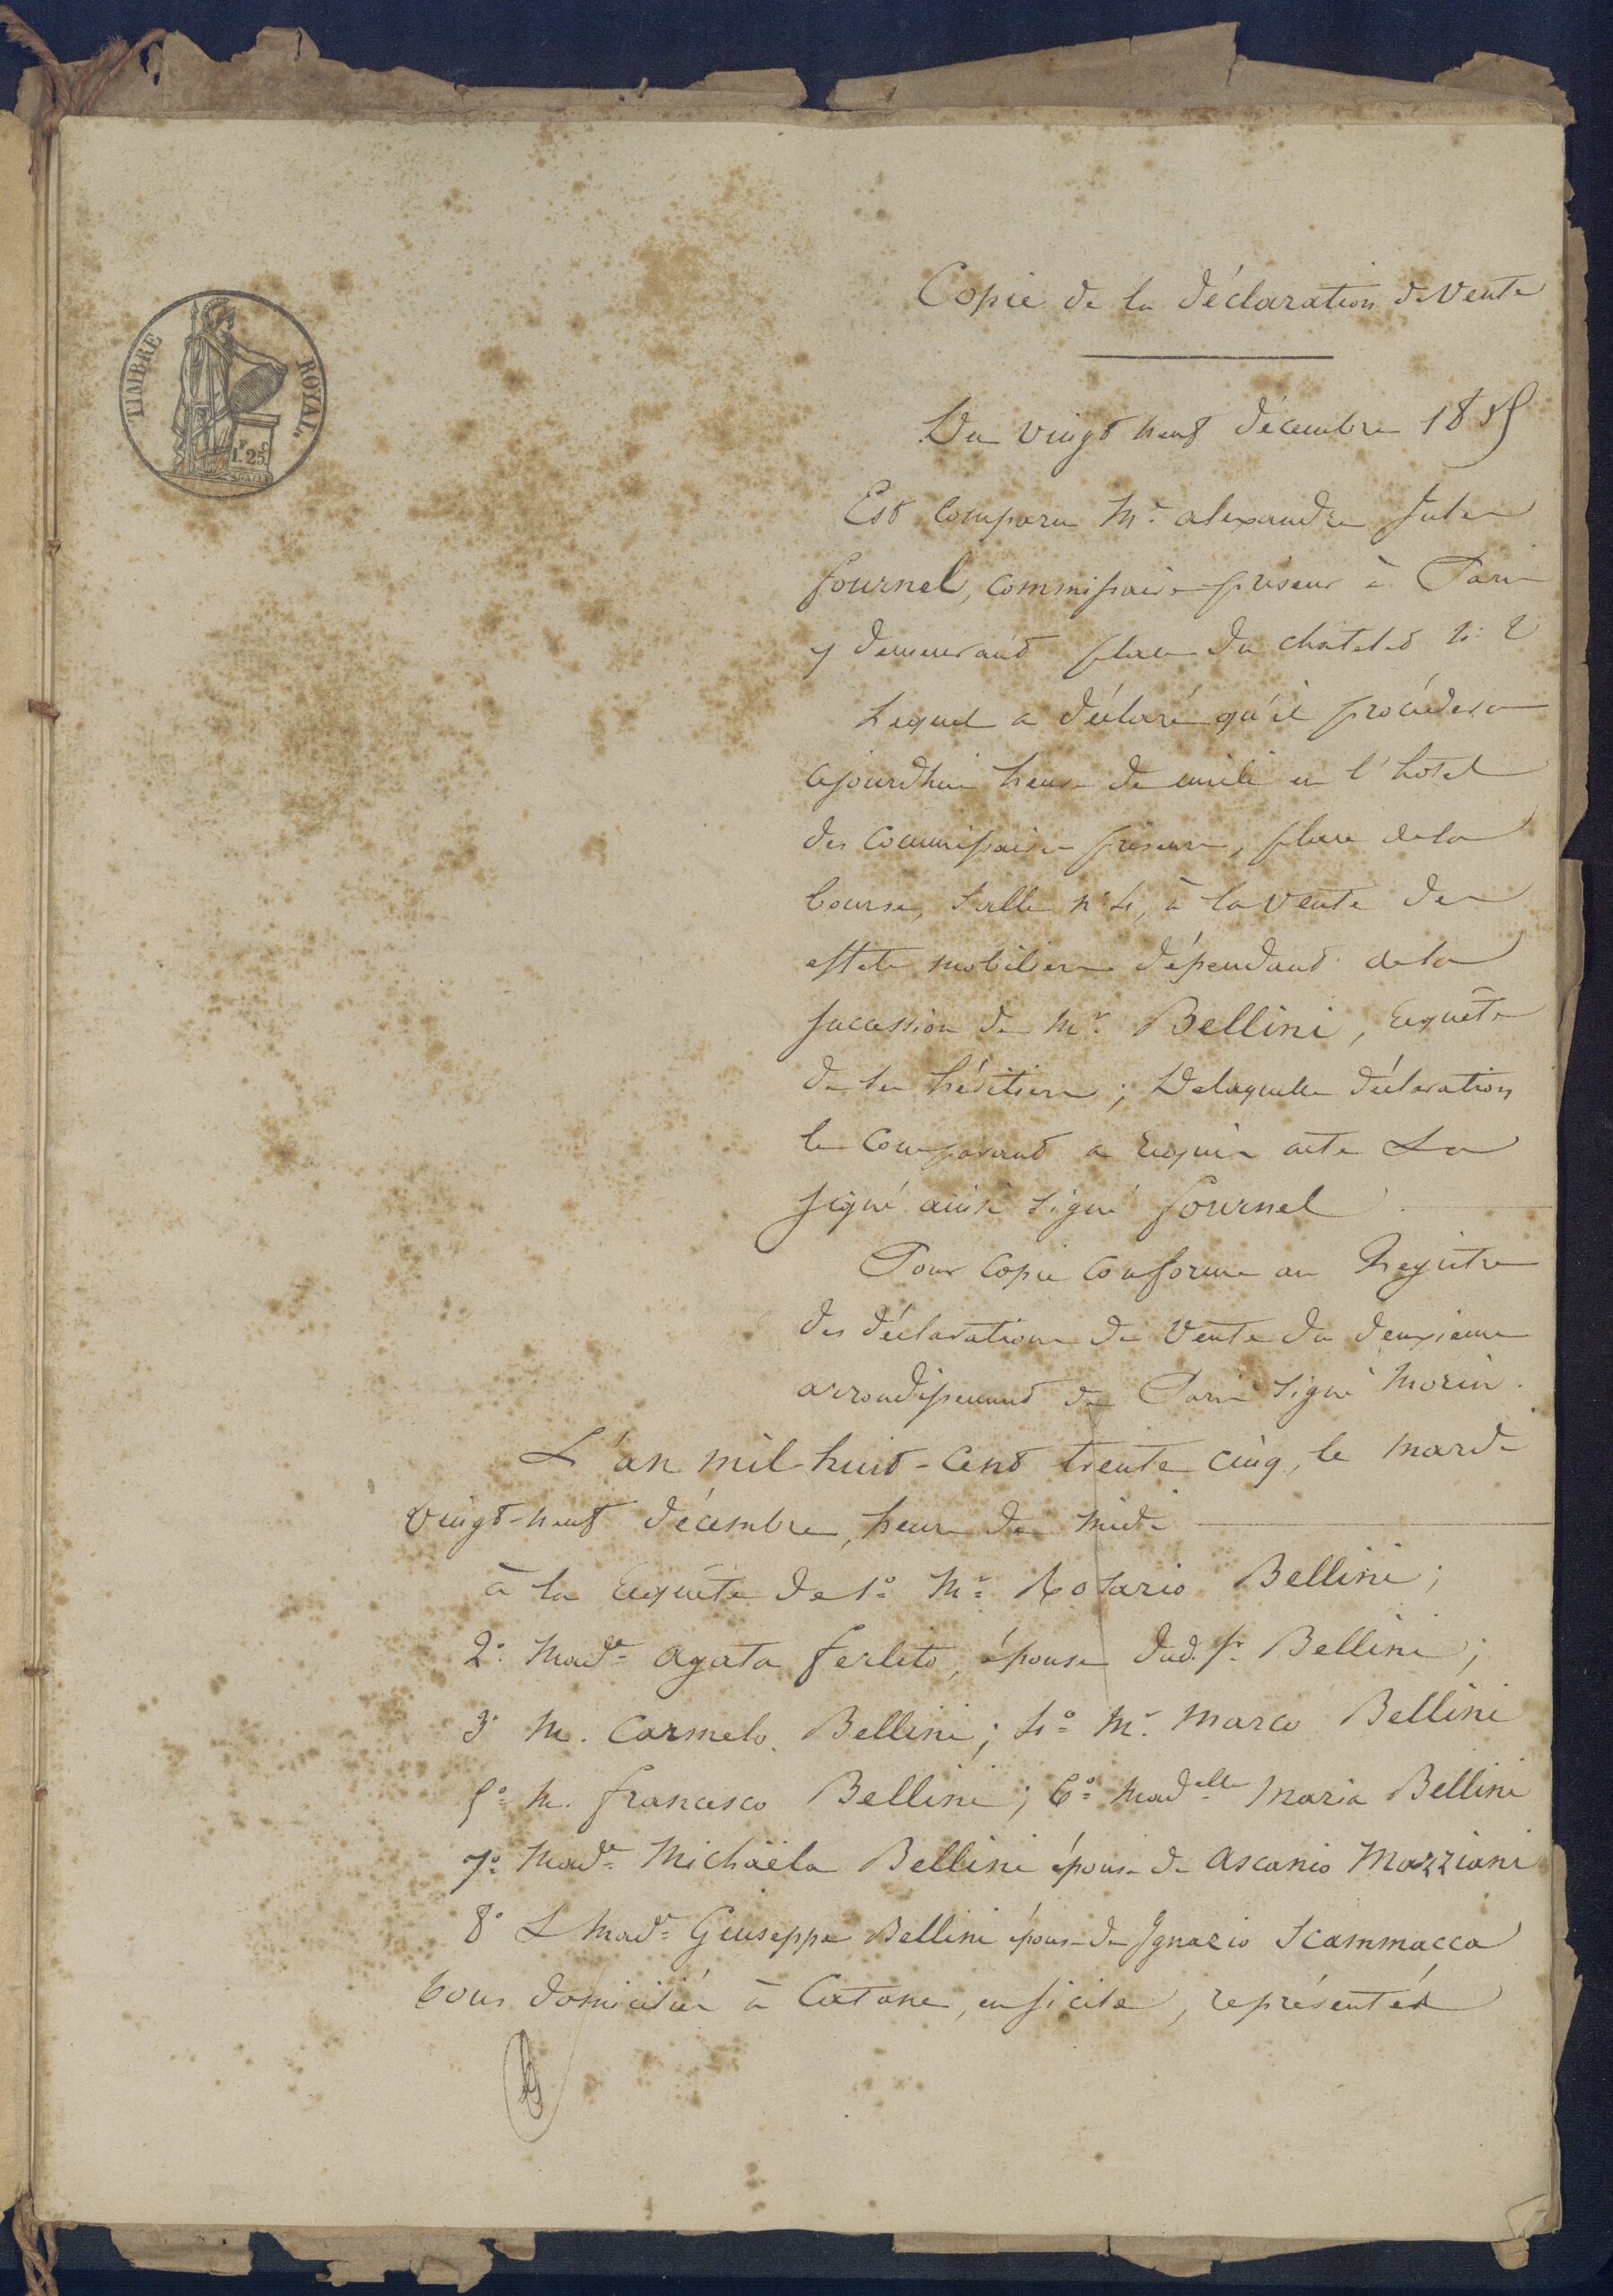 TIMBRE ROYAL.
F. C.
1.25
Copie de la déclaration de Vente
Du vingt neuf décembre 1835
Est Comparu Mr. alexandre Jules
fournel, commissaire priseur à Paris
y demeurant place du chatelet no. 2
Lequel a déclaré qu'il procédera
ajourdhui heure de midi en l'hotel
des Commissaires priseurs, place de la
bourse, Salle no 4, à la vente des
effets mobiliers dépendant de la
succession de Mr. Bellini, requête
de ses héritiers; De laquelle déclaration
le Comparant a requis acte & a
signé ainsi signé fournel
Pour copie conforme au Registre
des déclarations de Vente du deuxieme
arrondissement de Paris signé Morin.
L'an mil-huit-cent trente cinq, le mardi
vingt-neuf décembre, heure de midi
à la requête de 1o. Mr. Rosario Bellini;
2o. Made. agata ferlito, épouse dud. sr. Bellini;
3o M. Carmelo Bellini; 4o. Mr. Marco Bellini
5o. M. francesco Bellini; 6o. Madelle Maria Bellini
7o. Made. Michaëla Bellini épouse de Ascanio Mazziani
8o & Made. Giuseppa Bellini épouse de Ignazio Scammacca
tous domiciliés à Catane, en sicile, représentés